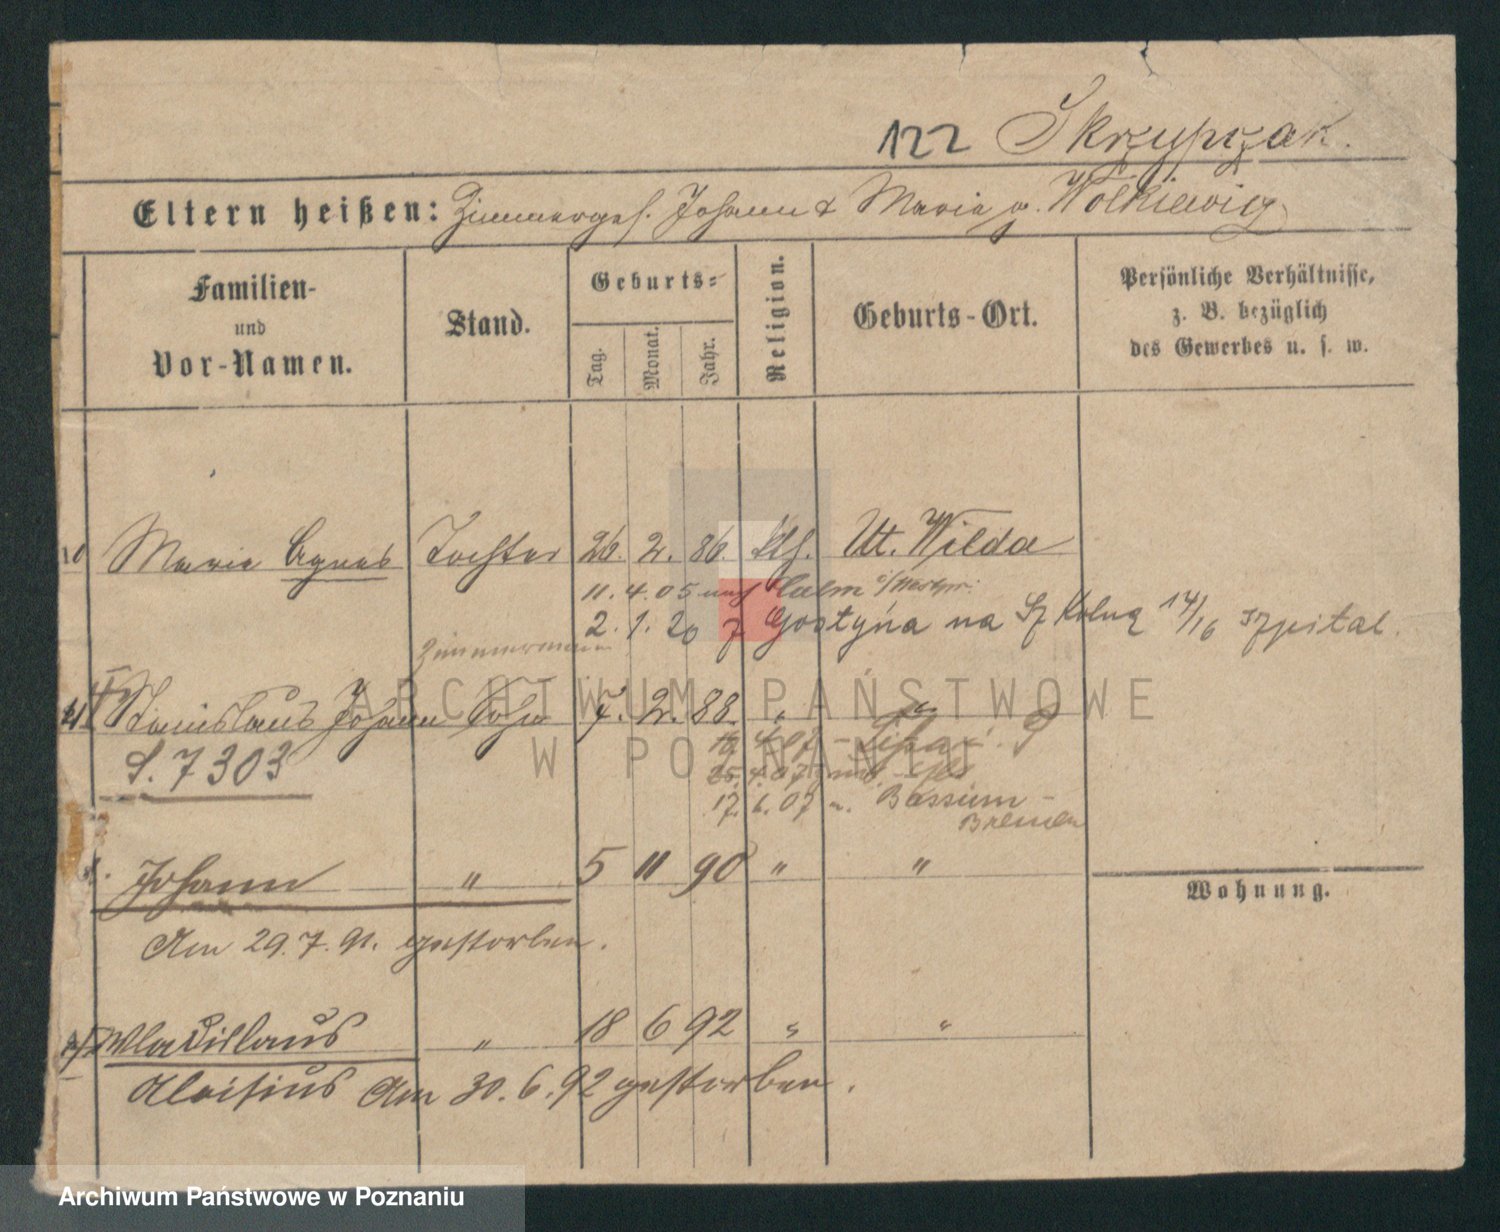 122 Skrzypczak.
Eltern heißen: Zimmerges. Johann & Marie g. Wolkiewicz
Familien- und Vor-Namen.
Stand.
Geburts-
Tag.
Monat.
Jahr.
Religion.
Geburts-Ort.
Persönliche Verhältnisse,
z. B. bezüglich
des Gewerbes u. s. w.
10 Marie Agnes Tochter 26. 2. 86. kth. Ut. Wilda
11. 4. 05 nach Culm i/Westpr.
2. 1. 20 z Gostynia na Szkolną 14/16 szpital.
Zimmermann
Stanislaus Johann Sohn 7. 2. 88. "
S. 7303
4. 07
25. 4. 07
17. 6. 07 n. Bassum -
Bremen
Johann " 5 11 90 " "
Am 29. 7. 91. gestorben.
Wohnung.
Wladislaus " 18 6 92 " "
Aloisius Am 30. 6. 92 gestorben.
ARCHIWUM PAŃSTWOWE
W POZNANIU
Archiwum Państwowe w Poznaniu